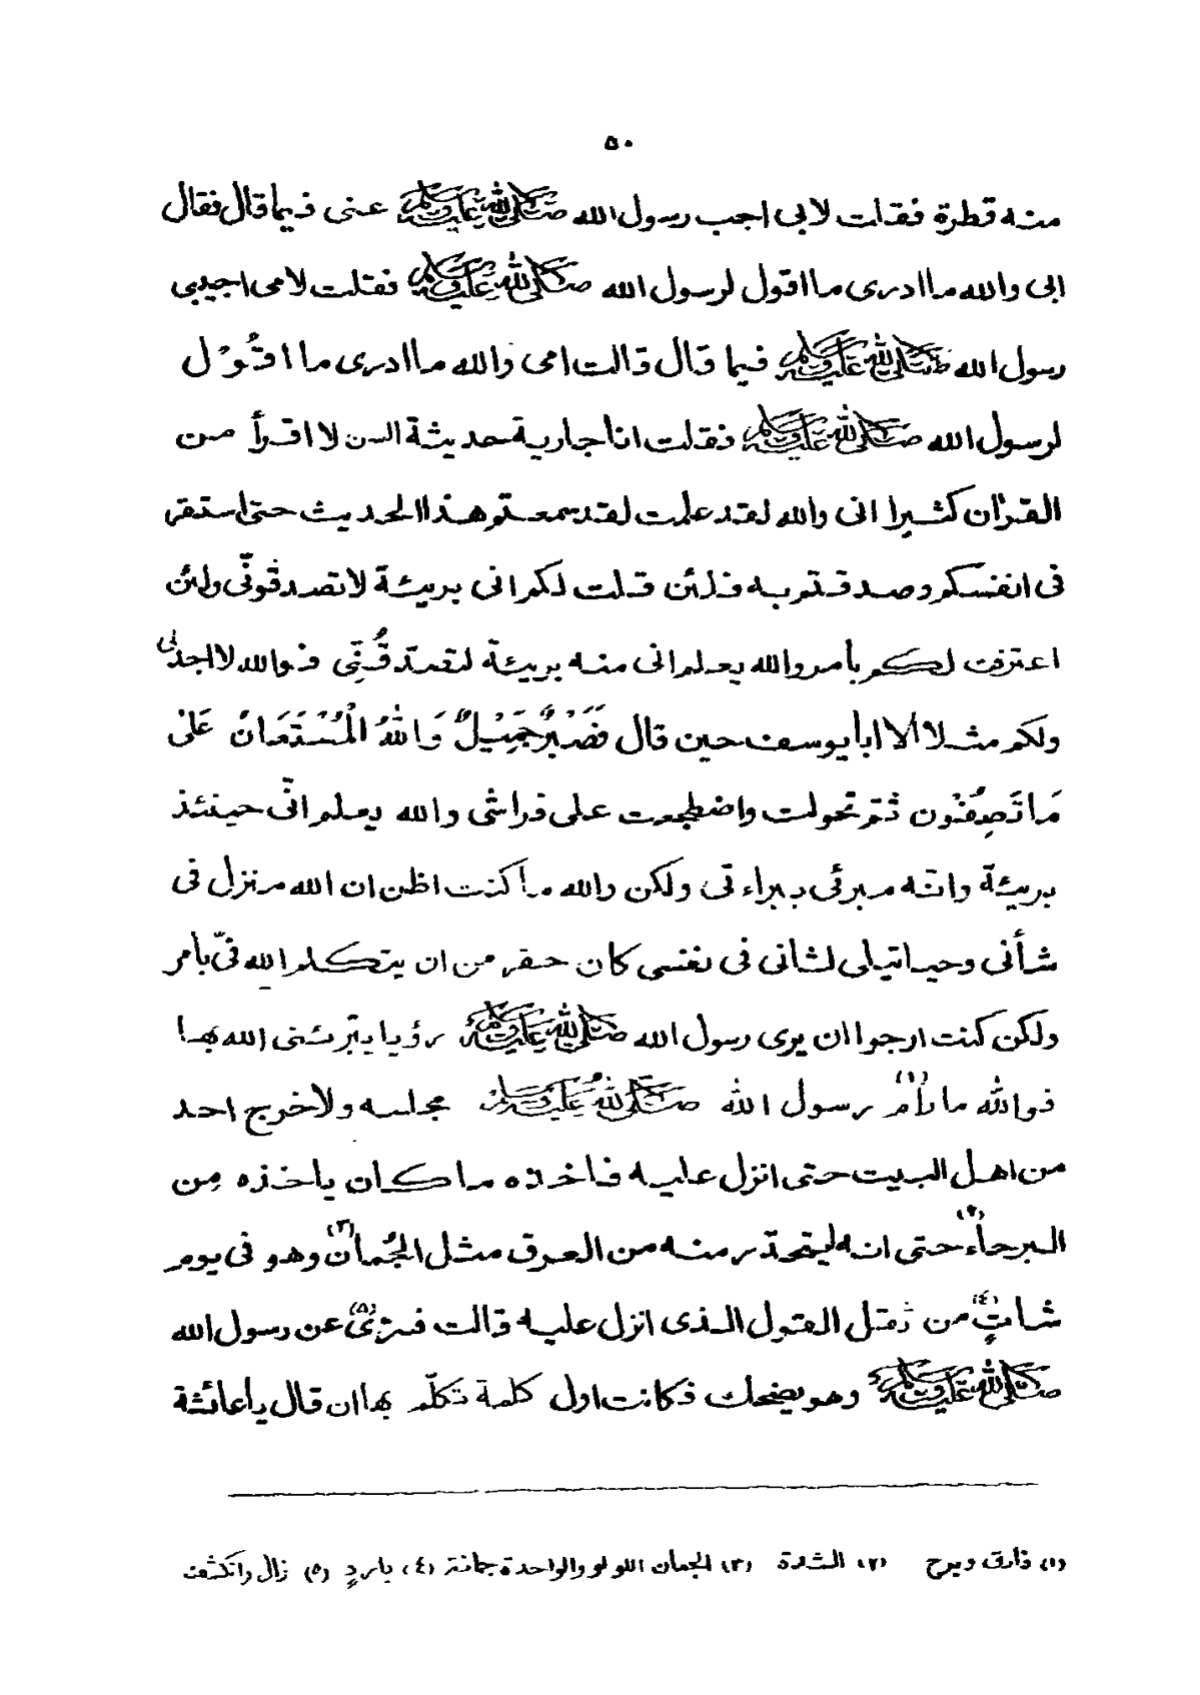 ٥٠
منه قطرة فقلت لابى اجب رسول الله ﷺ عنى فيما قال فقال
ابى والله ما ادرى ما اقول لرسول الله ﷺ فقلت لامى اجيبى
رسول الله ﷺ فيما قال قالت امى والله ما ادرى ما اقُوْل
لرسول الله ﷺ فقلت انا جارية حديثة السن لا اقرأ من
القرٰان كثيرا انى والله لقد علمت لقد سمعتم هذا الحديث حتى استقر
فى انفسكم وصدقتم به فلئن قلت لكم انى بريئة لا تصدقونّى ولئن
اعترفت لكم بأمر والله يعلم انى منه بريئة لتصدّقُنِّى فوالله لا اجد لى
ولكم مثلا الا ابا يوسف حين قال فَصَبْرٌ جَمِيْلٌ وَاللهُ الْمُسْتَعَانُ عَلٰى
مَا تَصِفُوْن ثم تحولت واضطجعت على فراشى والله يعلم انّى حينئذ
بريئة وانه مبرئى ببراءتى ولكن والله ما كنت اظن ان الله منزل فى
شأنى وحيا تيلى لشانى فى نفسى كان حقر من ان يتكلم الله فىّ بأمر
ولكن كنت ارجوا ان يرى رسول الله ﷺ رؤيا يبّرئنى الله بها
فوالله ما رأم (١) رسول الله ﷺ مجلسه ولا خرج احد
من اهل البيت حتى انزل عليه فاخذه ما كان ياخذه مِن
البرحاء (٢) حتى انه ليتحدّر منه من العرق مثل الجُمان (٣) وهو فى يوم
شاتٍ (٤) من ثقل القول الذى انزل عليه قالت فسُرّى (٥) عن رسول الله
ﷺ وهو يضحك فكانت اول كلمة تكلّم بها ان قال يا عائشة
(١) فارق وبرح (٢) الشدة (٣) الجمان اللولو والواحدة جمانة (٤) باردٍ (٥) زال وانكشف